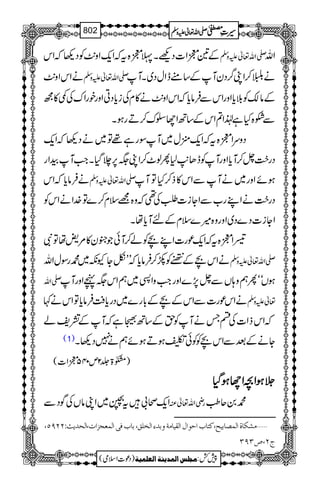 سیرتِ مصطفی صلی اللہ تعالیٰ علیہ وسلم
802
اللہ صلی اللہ تعالیٰ علیہ وسلم کے تین معجزات دیکھے۔ پہلا معجزہ یہ کہ ایک اونٹ کو دیکھا کہ اس
نے بلبلا کر اپنی گردن آپ کے سامنے ڈال دی۔ آپ صلی اللہ تعالیٰ علیہ وسلم نے اس اونٹ
کے مالک کو بلایا اور اس سے فرمایا کہ اس اونٹ نے کام کی زیادتی اور خوراک کی کمی کا مجھ
سے شکوہ کیا ہے لہٰذا تم اس کے ساتھ اچھا سلوک کرتے رہو۔
دوسرا معجزہ یہ کہ ایک منزل میں آپ سو رہے تھے تو میں نے دیکھا کہ ایک
درخت چل کر آیا اور آپ کو ڈھانپ لیا پھر لوٹ کر اپنی جگہ پر چلا گیا۔ جب آپ بیدار
ہوئے اور میں نے آپ سے اس کا ذکر کیا تو آپ صلی اللہ تعالیٰ علیہ وسلم نے فرمایا کہ اس
درخت نے اپنے رب سے اس بات کی اجازت طلب کی تھی کہ وہ مجھے سلام کرے تو خدا نے اس کو
اجازت دے دی اور وہ میرے سلام کے لئے آیا تھا۔
تیسرا معجزہ یہ کہ ایک عورت اپنے بچے کو لے کر آئی جو جنون کا مریض تھا تو نبی
صلی اللہ تعالیٰ علیہ وسلم نے اس بچے کے نتھنے کو پکڑ کر فرمایا کہ ’’نکل جا کیونکہ میں محمد رسول اللہ
ہوں‘‘ پھر ہم وہاں سے چل پڑے اور جب واپسی میں ہم اس جگہ پہنچے اور آپ صلی اللہ
تعالیٰ علیہ وسلم نے اس عورت سے اس کے بچے کے بارے میں دریافت فرمایا تو اس نے کہا
کہ اس ذات کی قسم جس نے آپ کو حق کے ساتھ بھیجا ہے کہ آپ کے تشریف لے
جانے کے بعد سے اس بچے کو کوئی تکلیف ہوتے ہوئے ہم نے نہیں دیکھا۔ (1)
(مشکوٰۃ جلد ۲ ص ۵۴۰ معجزات)
جلا ہوا بچہ اچھا ہو گیا
محمد بن حاطب رضی اللہ تعالیٰ عنہ ایک صحابی ہیں یہ بچپن میں اپنی ماں کی گود سے
......مشکاۃ المصابیح، کتاب احوال القیامۃ وبدء الخلق، باب فی المعجزات، الحدیث: ۵۹۲۲،
ج۲، ص ۳۹۳
پیش کش: مجلس المدینۃ العلمیۃ (دعوتِ اسلامی)